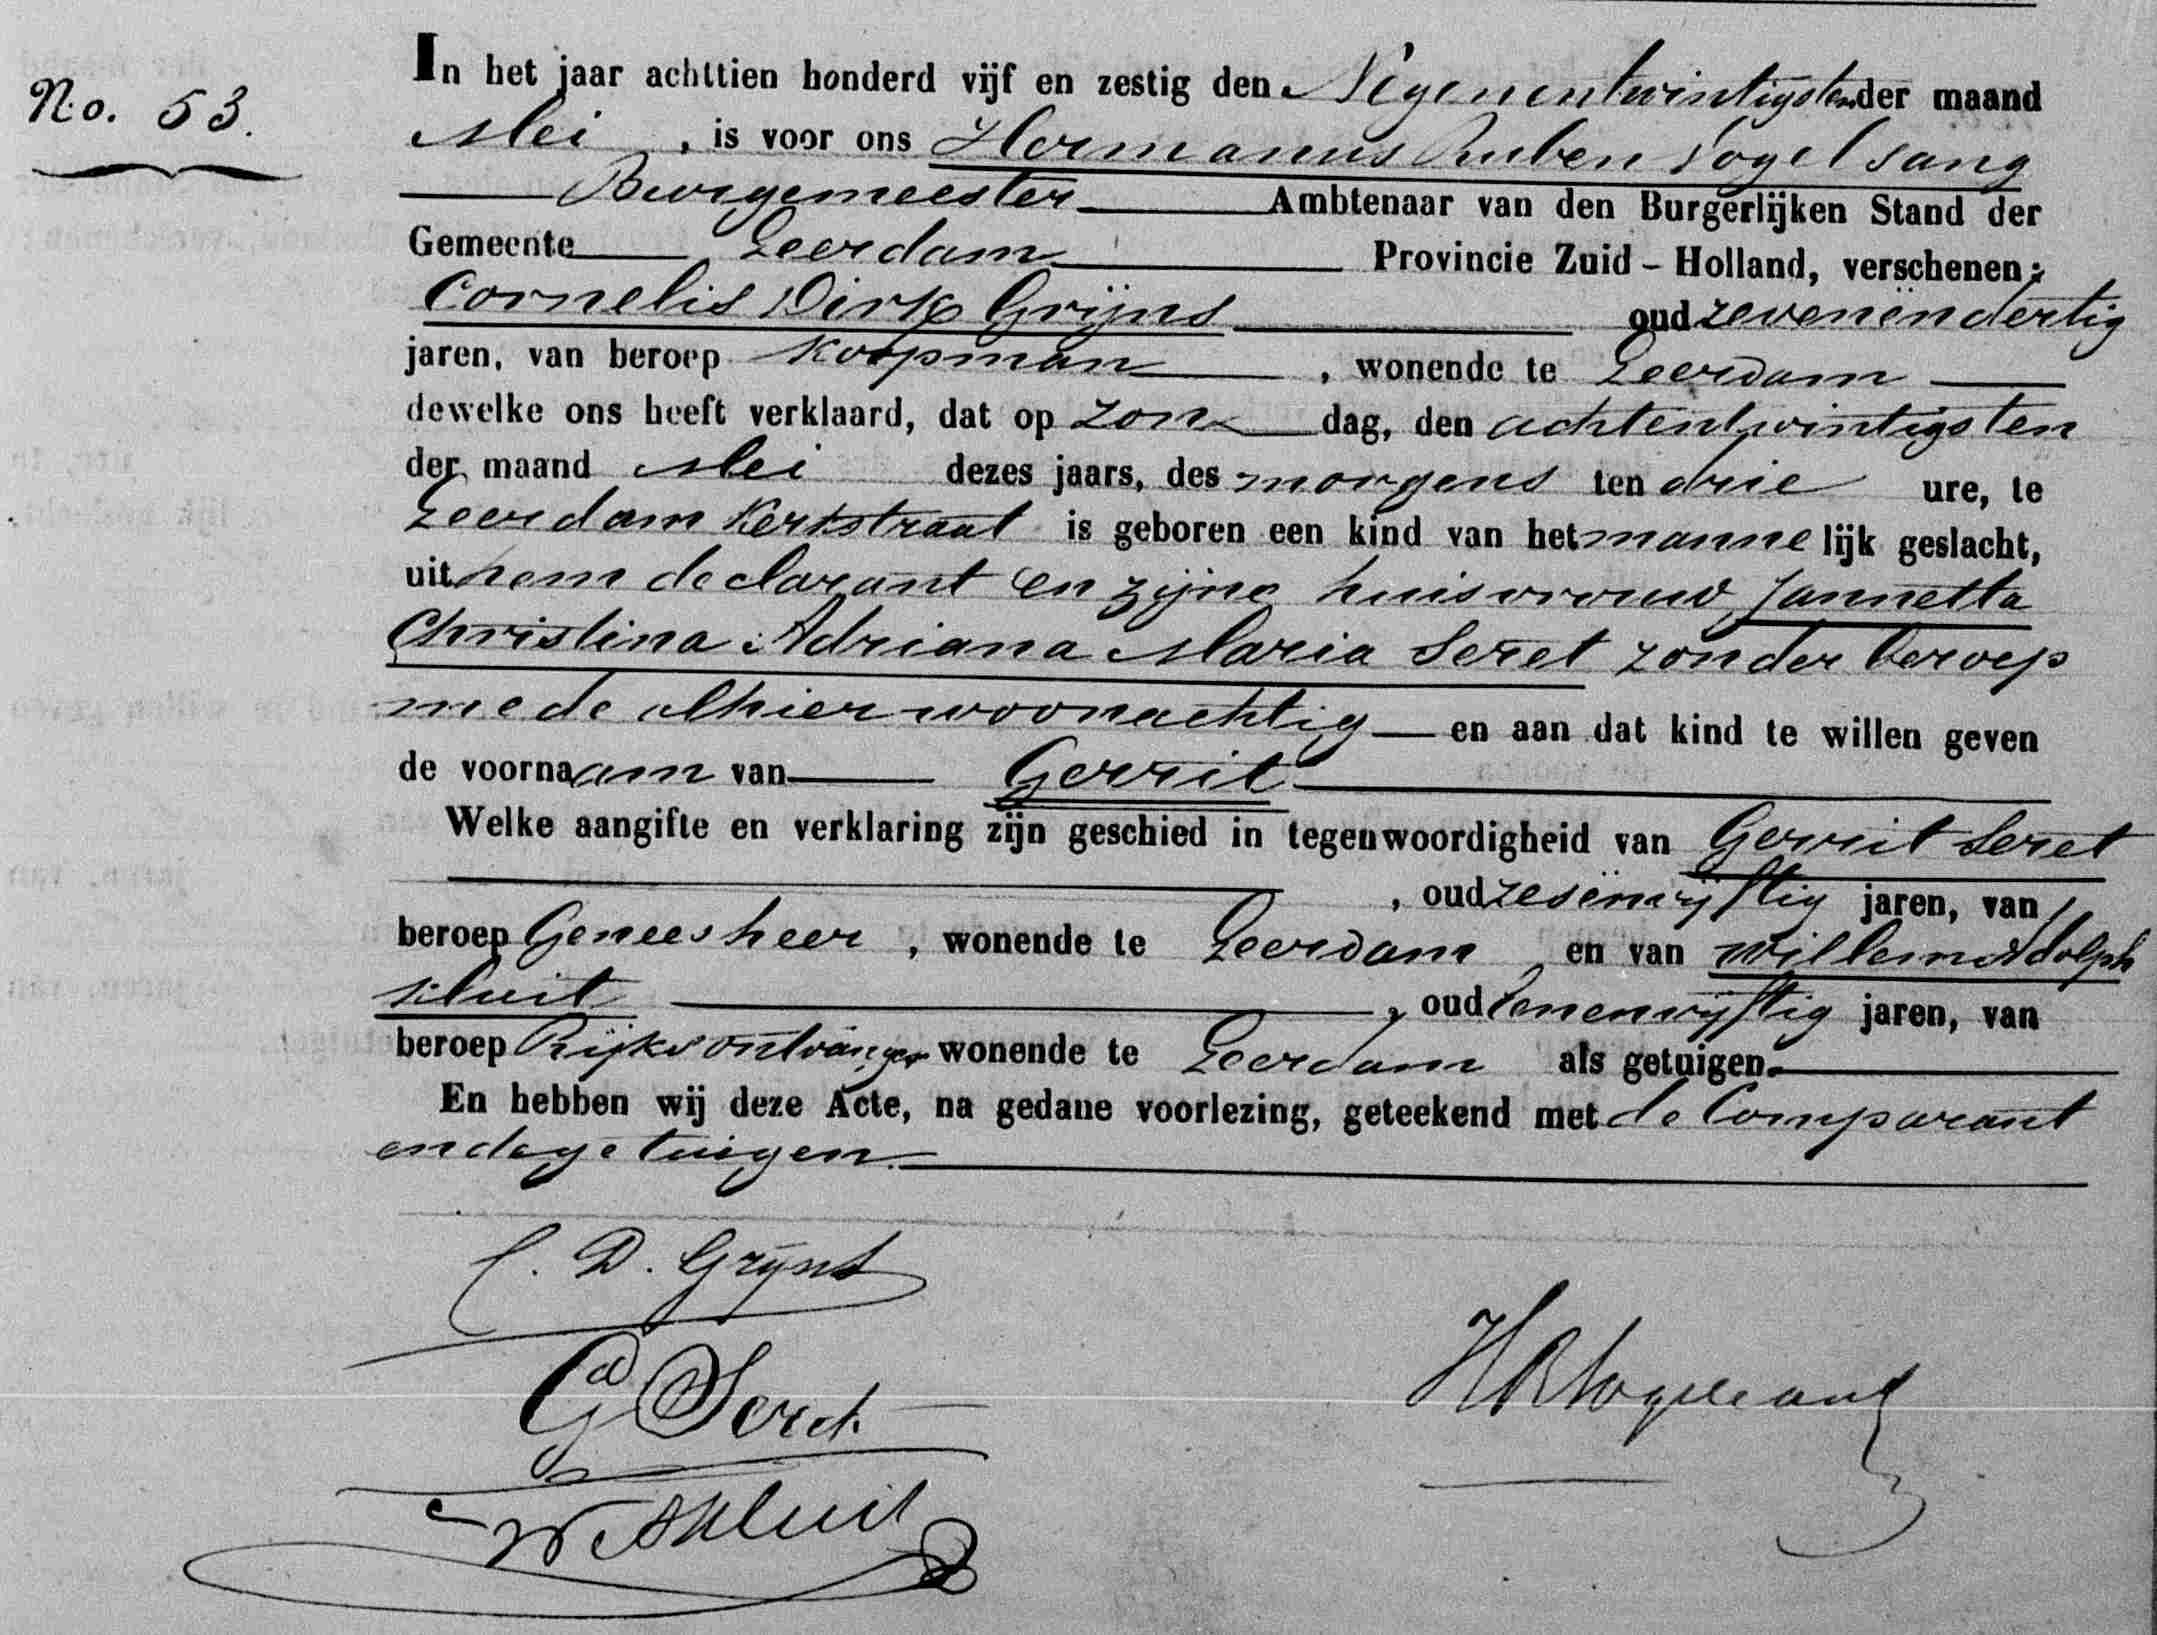 No. 53.
In het jaar achttien honderd vijf en zestig den Negenentwintigsten der maand
Mei , is voor ons Hermanus Ruben Vogelsang
Burgemeester Ambtenaar van den Burgerlijken Stand der
Gemeente Leerdam Provincie Zuid-Holland, verschenen:
Cornelis Dirk Grijns oud zevenendertig
jaren, van beroep Koopman , wonende te Leerdam
dewelke ons heeft verklaard, dat op Zon dag, den achtentwintigsten
der maand Mei dezes jaars, des morgens ten drie ure, te
Leerdam Kerkstraat is geboren een kind van het manne lijk geslacht,
uit hem declarant en zijne huisvrouw Jannetta
Christina Adriana Maria Seret zonder beroep
mede alhier woonachtig en aan dat kind te willen geven
de voornaam van Gerrit
Welke aangifte en verklaring zijn geschied in tegenwoordigheid van Gerrit Seret
, oud zesenvijftig jaren, van
beroep Geneesheer , wonende te Leerdam en van Willem Adolph
Kluit , oud eenenvijftig jaren, van
beroep Rijksontvanger wonende te Leerdam als getuigen.
En hebben wij deze Acte, na gedane voorlezing, geteekend met de Comparant
en de getuigen.
C. D. Grijns
Gd Seret
HRVogelsang
W A Kluit